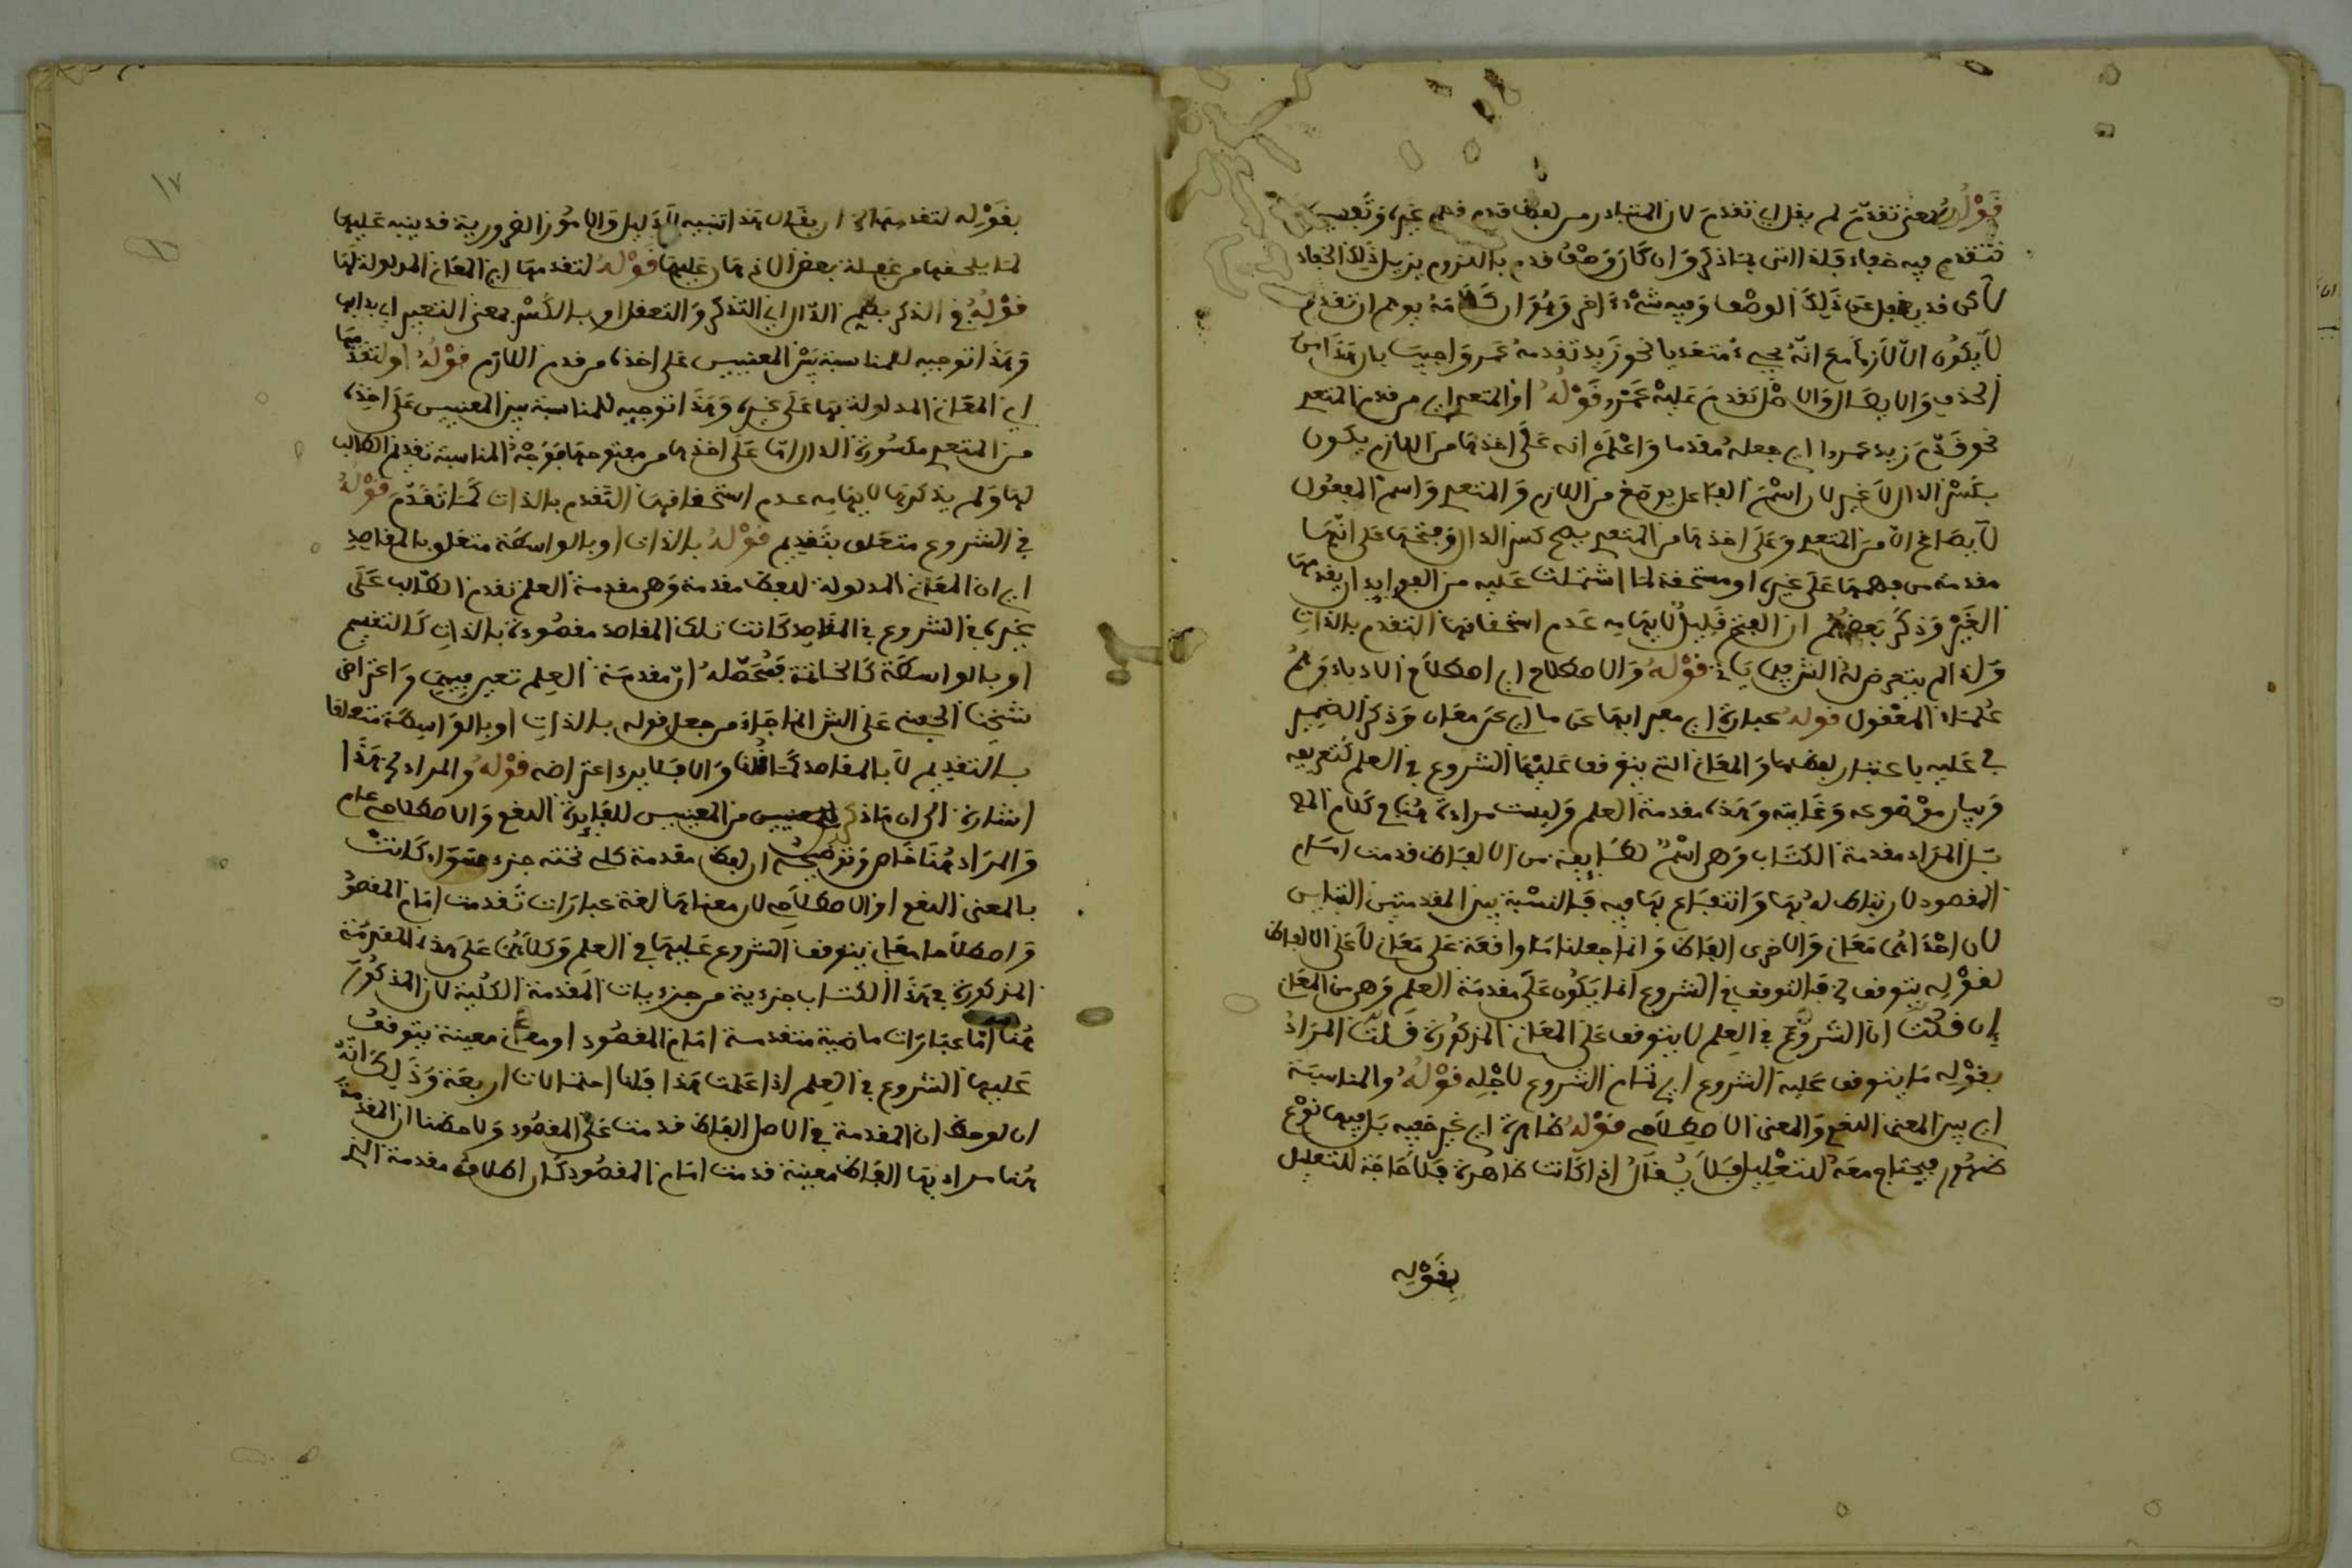 قَوْلُهُ بمعنى تقدّمَ لم يقل اي تقدمَ لان المتبادر من لفظ قدم قدم غيره وتفسيره
بتقدم فيه خفاء قبلة التى بتاذكر وان كان وَصْفُ قدم باللزوم يزيل ذلك الخفاء
لاكن قد يغفل عن ذلك الوصف وفيه شىْءٌ ءَاخر وَهُوَ ان كَلَامَهُ يوهم ان تقدم
لَا يكُون الّا لَازما مَعَ انّهُ يجيءُ متعديا نحو زَيد تقدمهُ عَمرو واجيب بان هَذَا من
الحذف وَالايصَال وَالاصْل تَقدمَ عَليْه عَمْرو قَوْلُهُ او المتعدي اي من قدم المتعدي
نحو قَدّمَ زيد عمروا اي جعلهُ مُقدما وَاعْلَم انه عَلَى اخذها من اللازم يكون
بكَسْر الدال لَا غير لان اسْمَ الفاعل يصَاغ من اللازم وَالمتعدي وَاسم المفعُول
لَا يصَاغ الّا مِنَ المتعدي وَعَلَى اخذها من المتعدي يصح كسر الدال وَفتحُهَا عَلى انّهَا
مقدمة من فهمهَا عَلَى غيره او مستحقة لما اشتملت عَليه من الفوايد ان يقدمهَا
الغَيْر وَذكَرَ بَعضهُم ان الفتح قَليلٌ لايهامه عَدم استحقاقهَا التقدم بالذاتِ
وَلذا لم يتعرض لهُ الشر قَوْلُهُ وَالاصطلاح اي اصطلَاح الادباءِ وَهُمْ
عُلمَاءُ المعْقول قوله عبارة اي مَعبر ابهَا عن ما اي عَن معَان وَذكرَ الضمِير
في عَليه باعتبار لفظهَا وَالمعَاني التي يتوقف عَليْهَا الشروع في العلم كَتعريفه
وَبيان موْضُوعه وَغَايته وَهَذه مقدمةُ العلم وَليست مرادة هُنا في كَلام المص
بَل المرَاد مقدمة الكتاب وَهي اسْمٌ لطَايفة من الالفاظ قدمت امَام
المقصود لارتباط له بهَا وَانتفَاع بهَا فيه فَالنسْبة بين المقدمتين التباين
لان احْدَاهُمَا مَعَان وَالاخرى الفاظ وَانما جعلنَا مَا واقعَة عَلى مَعَان لَا عَلى الالفاظ
لقوْلِه يتوقف الخ فالتوقف في الشروع انما يَكُون عَلَى مقدمَة العلم وَهي من المعَاني
فإن قلتَ ان الشروعَ في العِلم لا يتوقف عَلى المعَاني المذكُورة قُلتُ المرَادُ
بقوْله مَا يتوقف عَليه الشروع اي تمام الشروع لاجْله قَوْلُهُ والمناسبَة
اي بين المعنى اللغوي وَالمعنى الاصطلَاحي قَوْلُهُ ظَاهرة اي غير خفيه بَل فيهَا نوْع
ظهُور فيحتاج معَهُ للتعْليل فلا يُقَالُ اذا كَانت ظاهرة فلَا حَاجَة للتعليل
بِقَوْلِه
بقَوْله لتقدمهَا الخ او يقَال هَذا تنبيه لَا دَليل وَالامُور الضرورية قد ينبه عَليها
لمَا يلحقها من غفلة بعض الاذهان عَليهَا قوْلهُ لتقدمهَا اي المعَاني المدلولة لهَا
قوْلهُ في الذكر بضم الذّال اي التذكر وَالتعقل او بالكَسْر بمعنى التعبير اي بدالها
وَهَذَا توجيه للمناسبَة بَيْنَ المعنيين عَلى اخذهَا من قدم اللازم قوْلُهُ او لتقدمهَا
اي المعَاني المدلولة بهَا عَلى غيره وَهَذَا توجيه للمناسبة بين المعنيين عَلى اخِذهَا
من المتعدي مكسُورة الدال امّا عَلَى اخذهَا من مفتوحهَا فوَجْهُ المناسبَة تقديم الطالب
لهَا وَلم يذكرهَا لايهامِه عدم استحقاقهَا التقدم بالذات كَمَا تَقَدّمَ قَوْلُهُ
في الشروع متعَلق بتَقديم قوْلُهُ بالذات او بالواسطَة متعلق بالمقاصدِ
اي ان المعَاني المدلولة للفظ مقدمة وَهي مقدمة العلم تقدم الطالب عَلَى
غيره في الشروع في المقَاصِد كَانت تلك المقاصد مقصُودة بالذاتِ كَالتقسيم
او بالواسطَة كَالخاتمة فمُحَصّلُهُ انّ مقدمَة العِلم تعتبر فيهمَا وَاعتراض
شيخنا الحفني عَلى الشر انما جَاءَ من جعل قوله بالذاتِ او بالوَاسِطَة متعلقا
بالتقديم لَا بالمقاصد كَمَا قُلنا وَالا فَلا يرد اعتراضه قَوْلهُ والمراد الخ هَذَا
اشارة الى ان مَا ذكر من المعنيين للفايدة اللغوي وَالاصطلاحي عام
وَالمرَاد هُنا خَاص وَتوضيحُه ان لفظ مقدمة كلي تحته جزء سَوَاء كَانتْ
بالمعنى اللغوي او الاصطلَاحي لان معناهَا لغة عبارَات تَقدمت امَام المقصُودِ
وَاصطلَاحا معَان يتوقف الشروع عَليهَا في العِلم وَكلَاهُمَا عَلى هَذه المقدِمَة
المذكورة في هَذَا الكتاب جزءية من جزءيات المقدمة الكُليّة لان المذكُورَ
هُنا امّا عبَارَات ماضية متقدمة امَام المقصُود او معَان معينة يتوقفُ
عَليها الشروع في العِلم اذا عَلمت هَذا فلنا احتمالات اربعَة وَذَلِكَ انّهُ
ان لوحظ ان المقدمة في الاصل الفَاظ قدمت عَلَى المقصُود وَلاحظنا ان المقدمة
هُنا مراد بهَا الفَاظ معينة قدمت امَام المقصُود كَان اطلَاق مقدمة التي